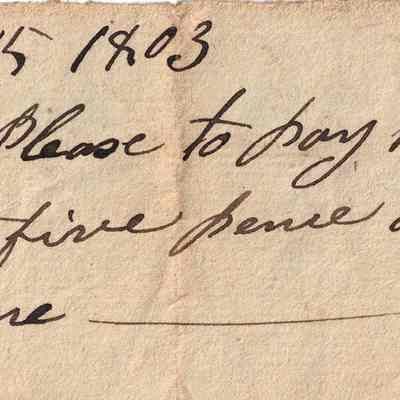 15 1803
Please to pay
five pence